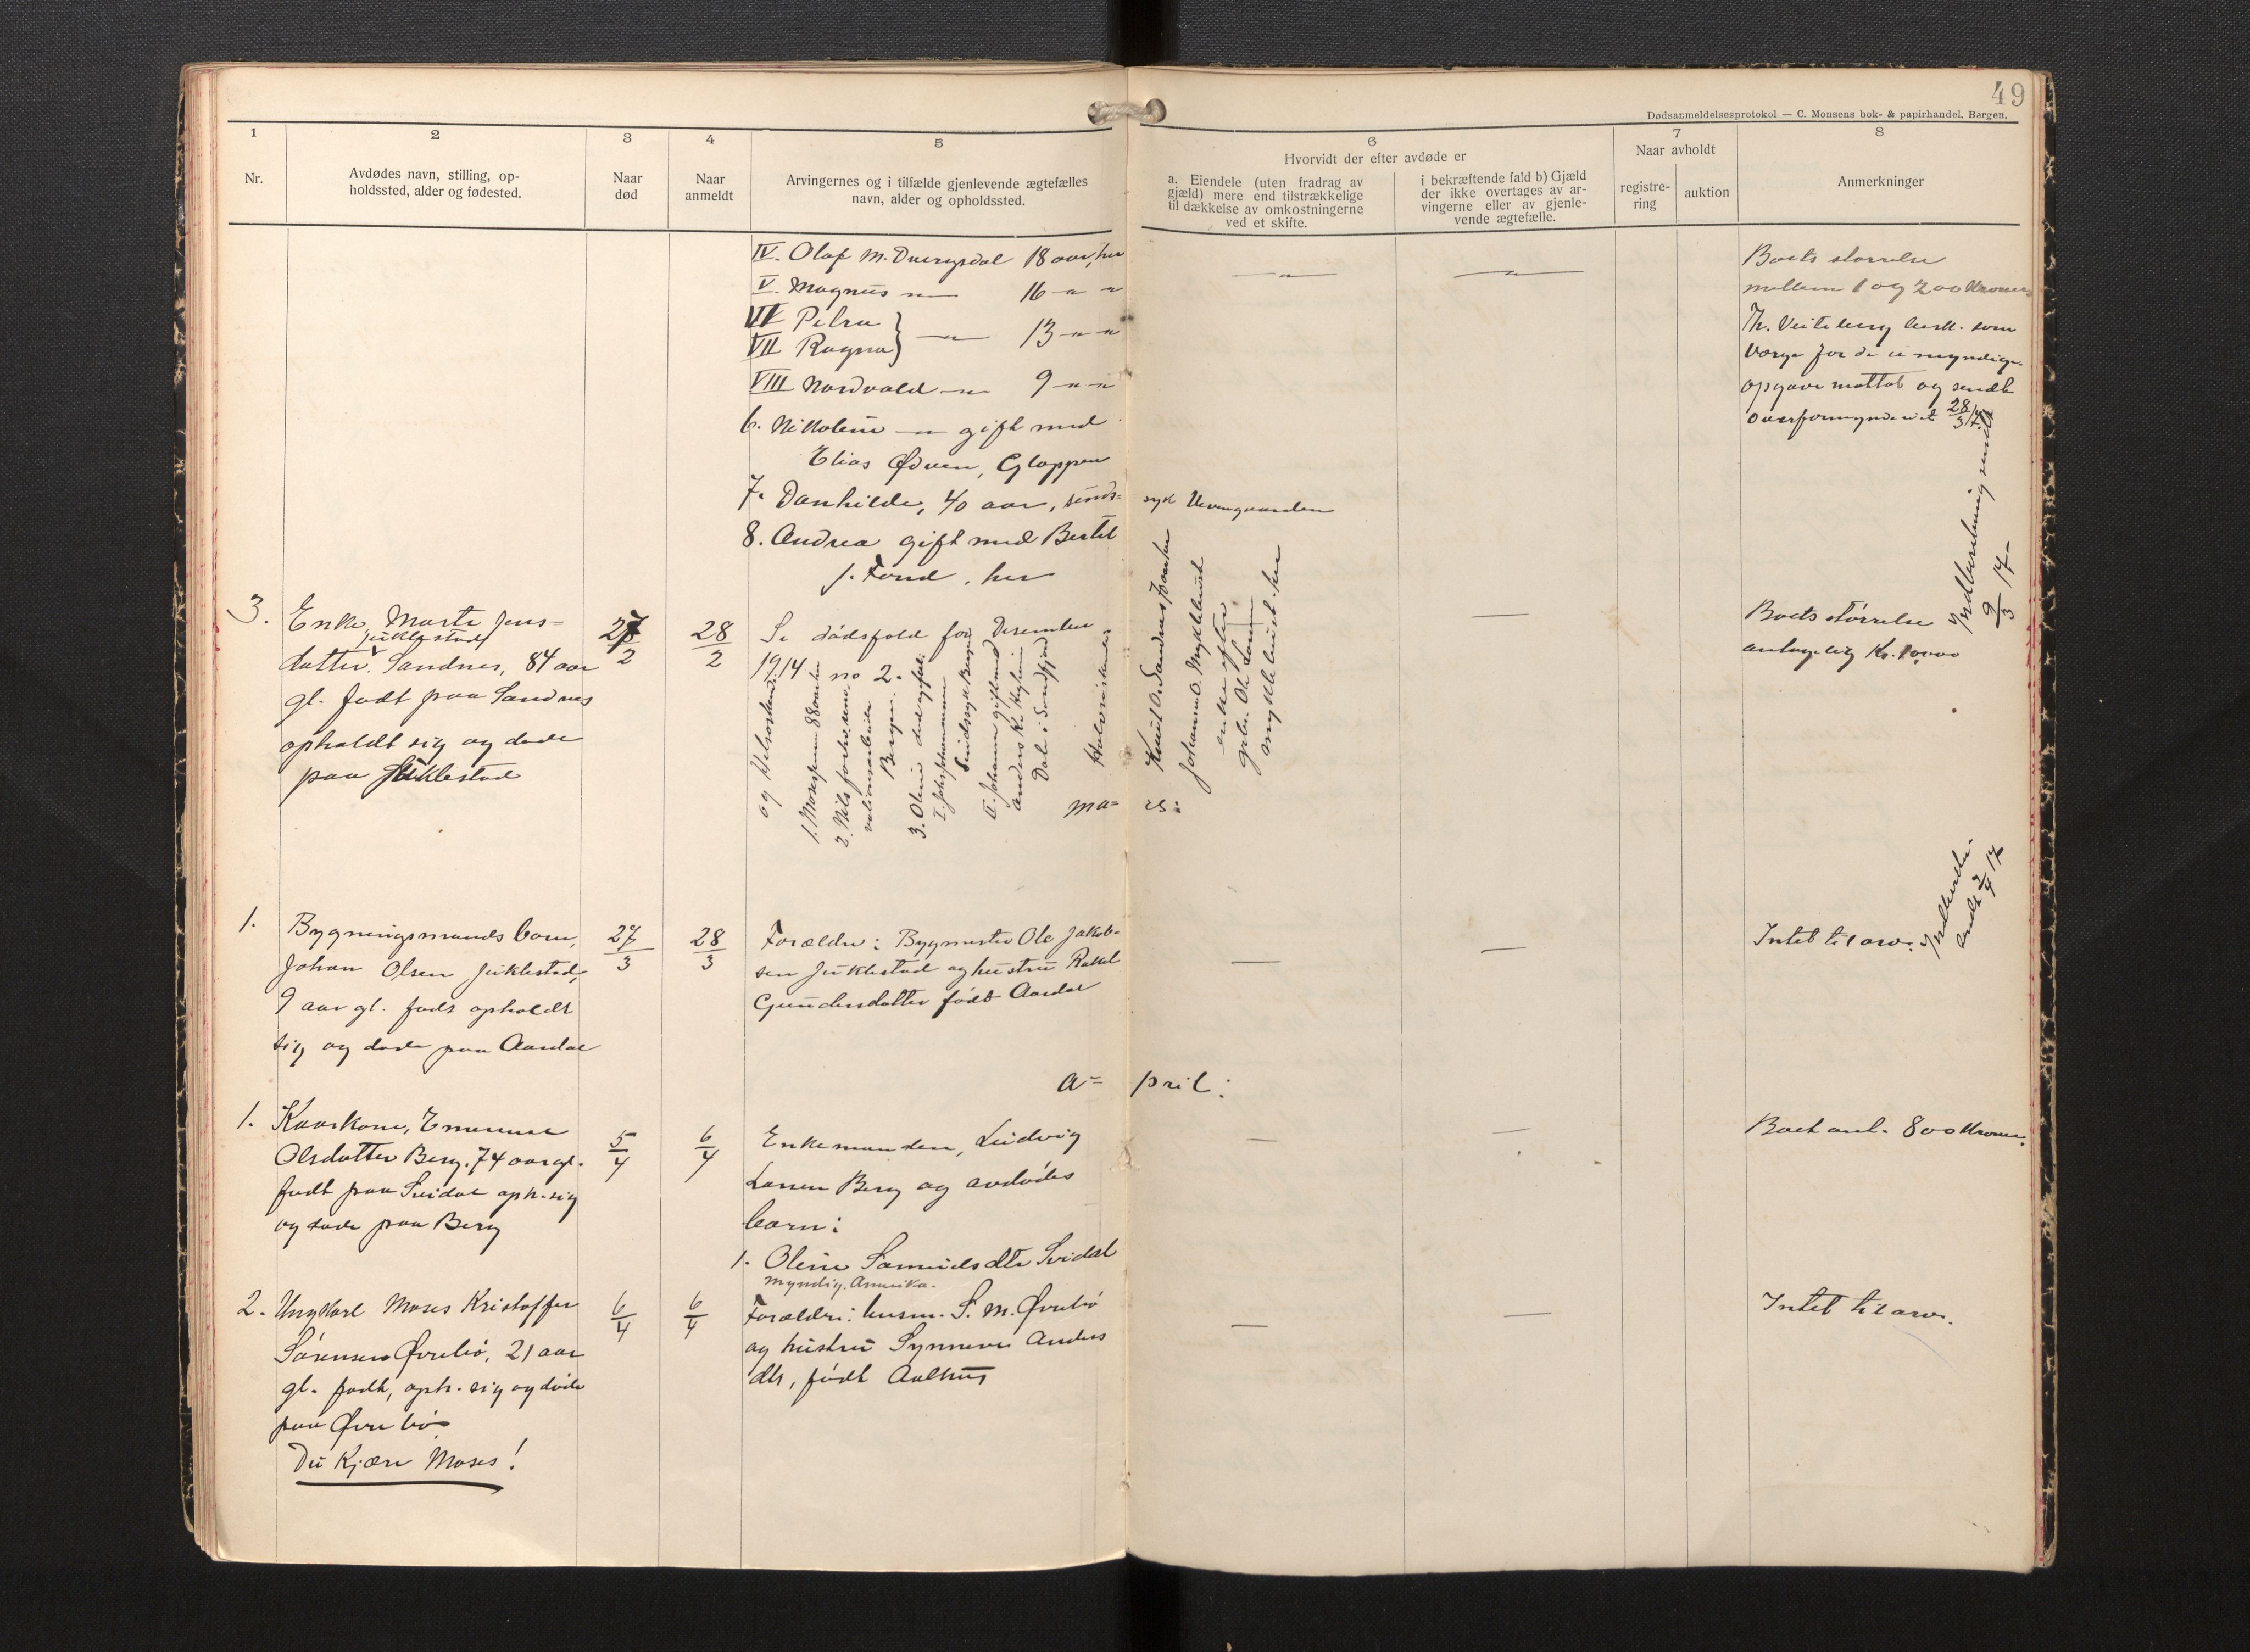 49
Dødsanmeldelsesprotokol — C. Monsens bok- & papirhandel, Bergen.
1
2
3
4
5
6
7
8
Nr.
Avdødes navn, stilling, op-
holdssted, alder og fødested.
Naar
død
Naar
anmeldt
Arvingernes og i tilfælde gjenlevende ægtefælles
navn, alder og opholdssted.
Hvorvidt der efter avdøde er
a. Eiendele (uten fradrag av
gjæld) mere end tilstrækkelige
til dækkelse av omkostningerne
ved et skifte.
i bekræftende fald b) Gjæld
der ikke overtages av ar-
vingerne eller av gjenle-
vende ægtefælle.
Naar avholdt
registre-
ring
auktion
Anmerkninger
IV. Olaf M. 18 aar, her
V. Magnus —„— 16 -„- „
VI Petra
VII Ragna } —„— 13 -„- „
VIII Nordvald -„- 9 -„- „
6. Nikoline -„- gift med
Elias Øvren, Gloppen
7. Danhilde, 40 aar, sinds=
syk
8. Andrea gift med Bertel
J. Fond, her
—„— —„—
Boets størrelse
mellem 1 og 200 Kroner
Th. Veiteberg besk. som
Værge for de umyndige
opgave mottat og sendt
overformynderiet 28/3 17
3.
Enke, Marte Jens=
Juklestad
datter Sandnes, 84 aar
gl. født paa Sandnes
opholdt sig og døde
paa Juklestad
27/2
28/2
Se dødsfald for Desember
1914 no 2.
og Helsøskend:
1. Moses Jensen 88 aar her
2. Nils
Bergen
3. Oline død
I.
Sindssyk Bergen
II. Johanne gift med
Anders K.
Dale i Søndfjord
Halvsøskende:
Knut O. Sandnes, her
Johanne O. Myklebust
enke efter
Ole
Myklebust her
—
Boets størrelse
antagelig Kr. 10,000
Indberetning sendt
9/3 17-
Ma= rs:
1.
Bygningsmands barn,
Johan Olsen Juklestad,
9 aar gl. født opholdt
sig og døde paa Aardal
27/3
28/3
Forældre: Bygmester Ole Jakob-
sen Juklestad og hustru Rakel
Gundersdatter født Aardal
— —
Intet til arv.
Indberetn.
sendt 3/4 17
A= pril:
1.
Kaarkone,
Olsdatter Berg, 74 aar gl.
født paa Svidal oph. sig
og døde paa Berg
5/4
6/4
Enkemanden, Ludvig
Larsen Berg og avdødes
barn:
1. Oline Samuelsdtr Svidal
myndig. Amerika.
— —
Boet ant. 800 Kroner.
2.
Ungkarl Moses Kristoffer
Sørensen Øvrebø, 21 aar
gl. født, oph. sig og døde
paa Øvrebø
Du Kjære Moses!
6/4
6/4
Forældre: husm. S. M. Øvrebø
og hustru Synneve Anders
dtr, født Aalhus
— —
Intet til arv.